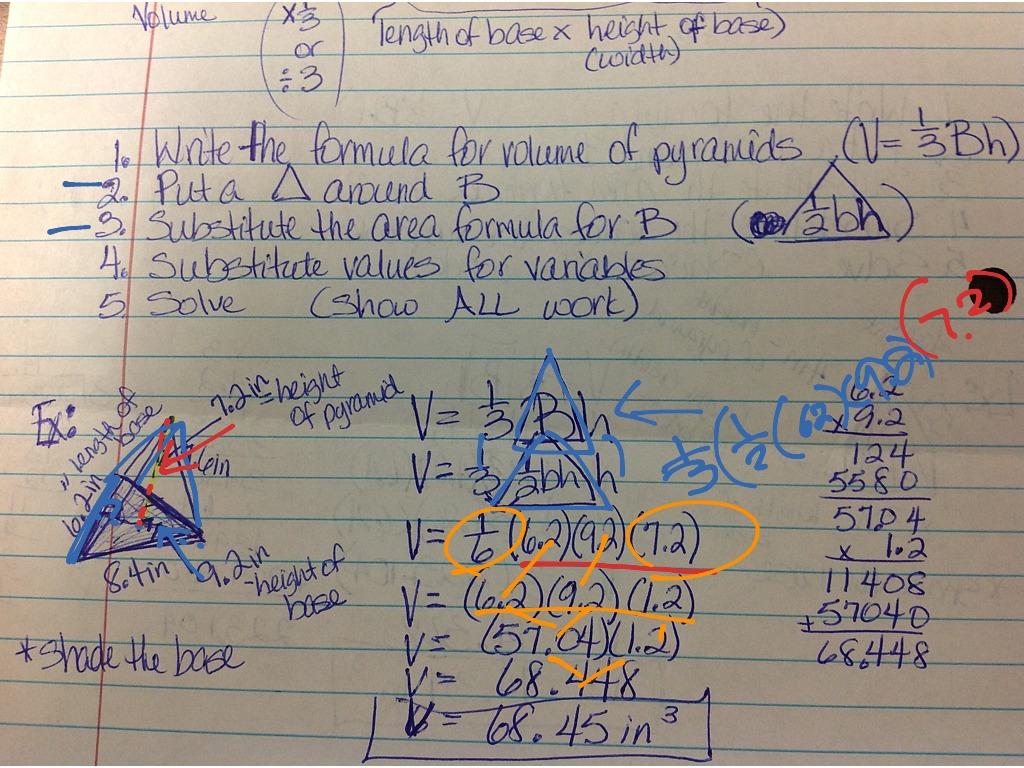 Volume
x 1/3
or
÷ 3
length of base x height of base)
(width)
1. Write the formula for volume of pyramids (V = 1/3 Bh)
2. Put a △ around B
3. Substitute the area formula for B ( 1/2 bh )
4. Substitute values for variables
5 Solve (show ALL work)
Ex:
7.2in = height
of pyramid
length of
base
6in
8.4in
9.2in
-height of
base
*Shade the base
V = 1/3 Bh
V = 1/3 (1/2 bh) h
1/3 (1/2 (6.2)(9.2)) (7.2)
V = 1/6 (6.2)(9.2)(7.2)
V = (6.2)(9.2)(1.2)
V = (57.04)(1.2)
V = 68.448
V = 68.45 in³
6.2
x 9.2
124
5580
5704
x 1.2
11408
+57040
68.448